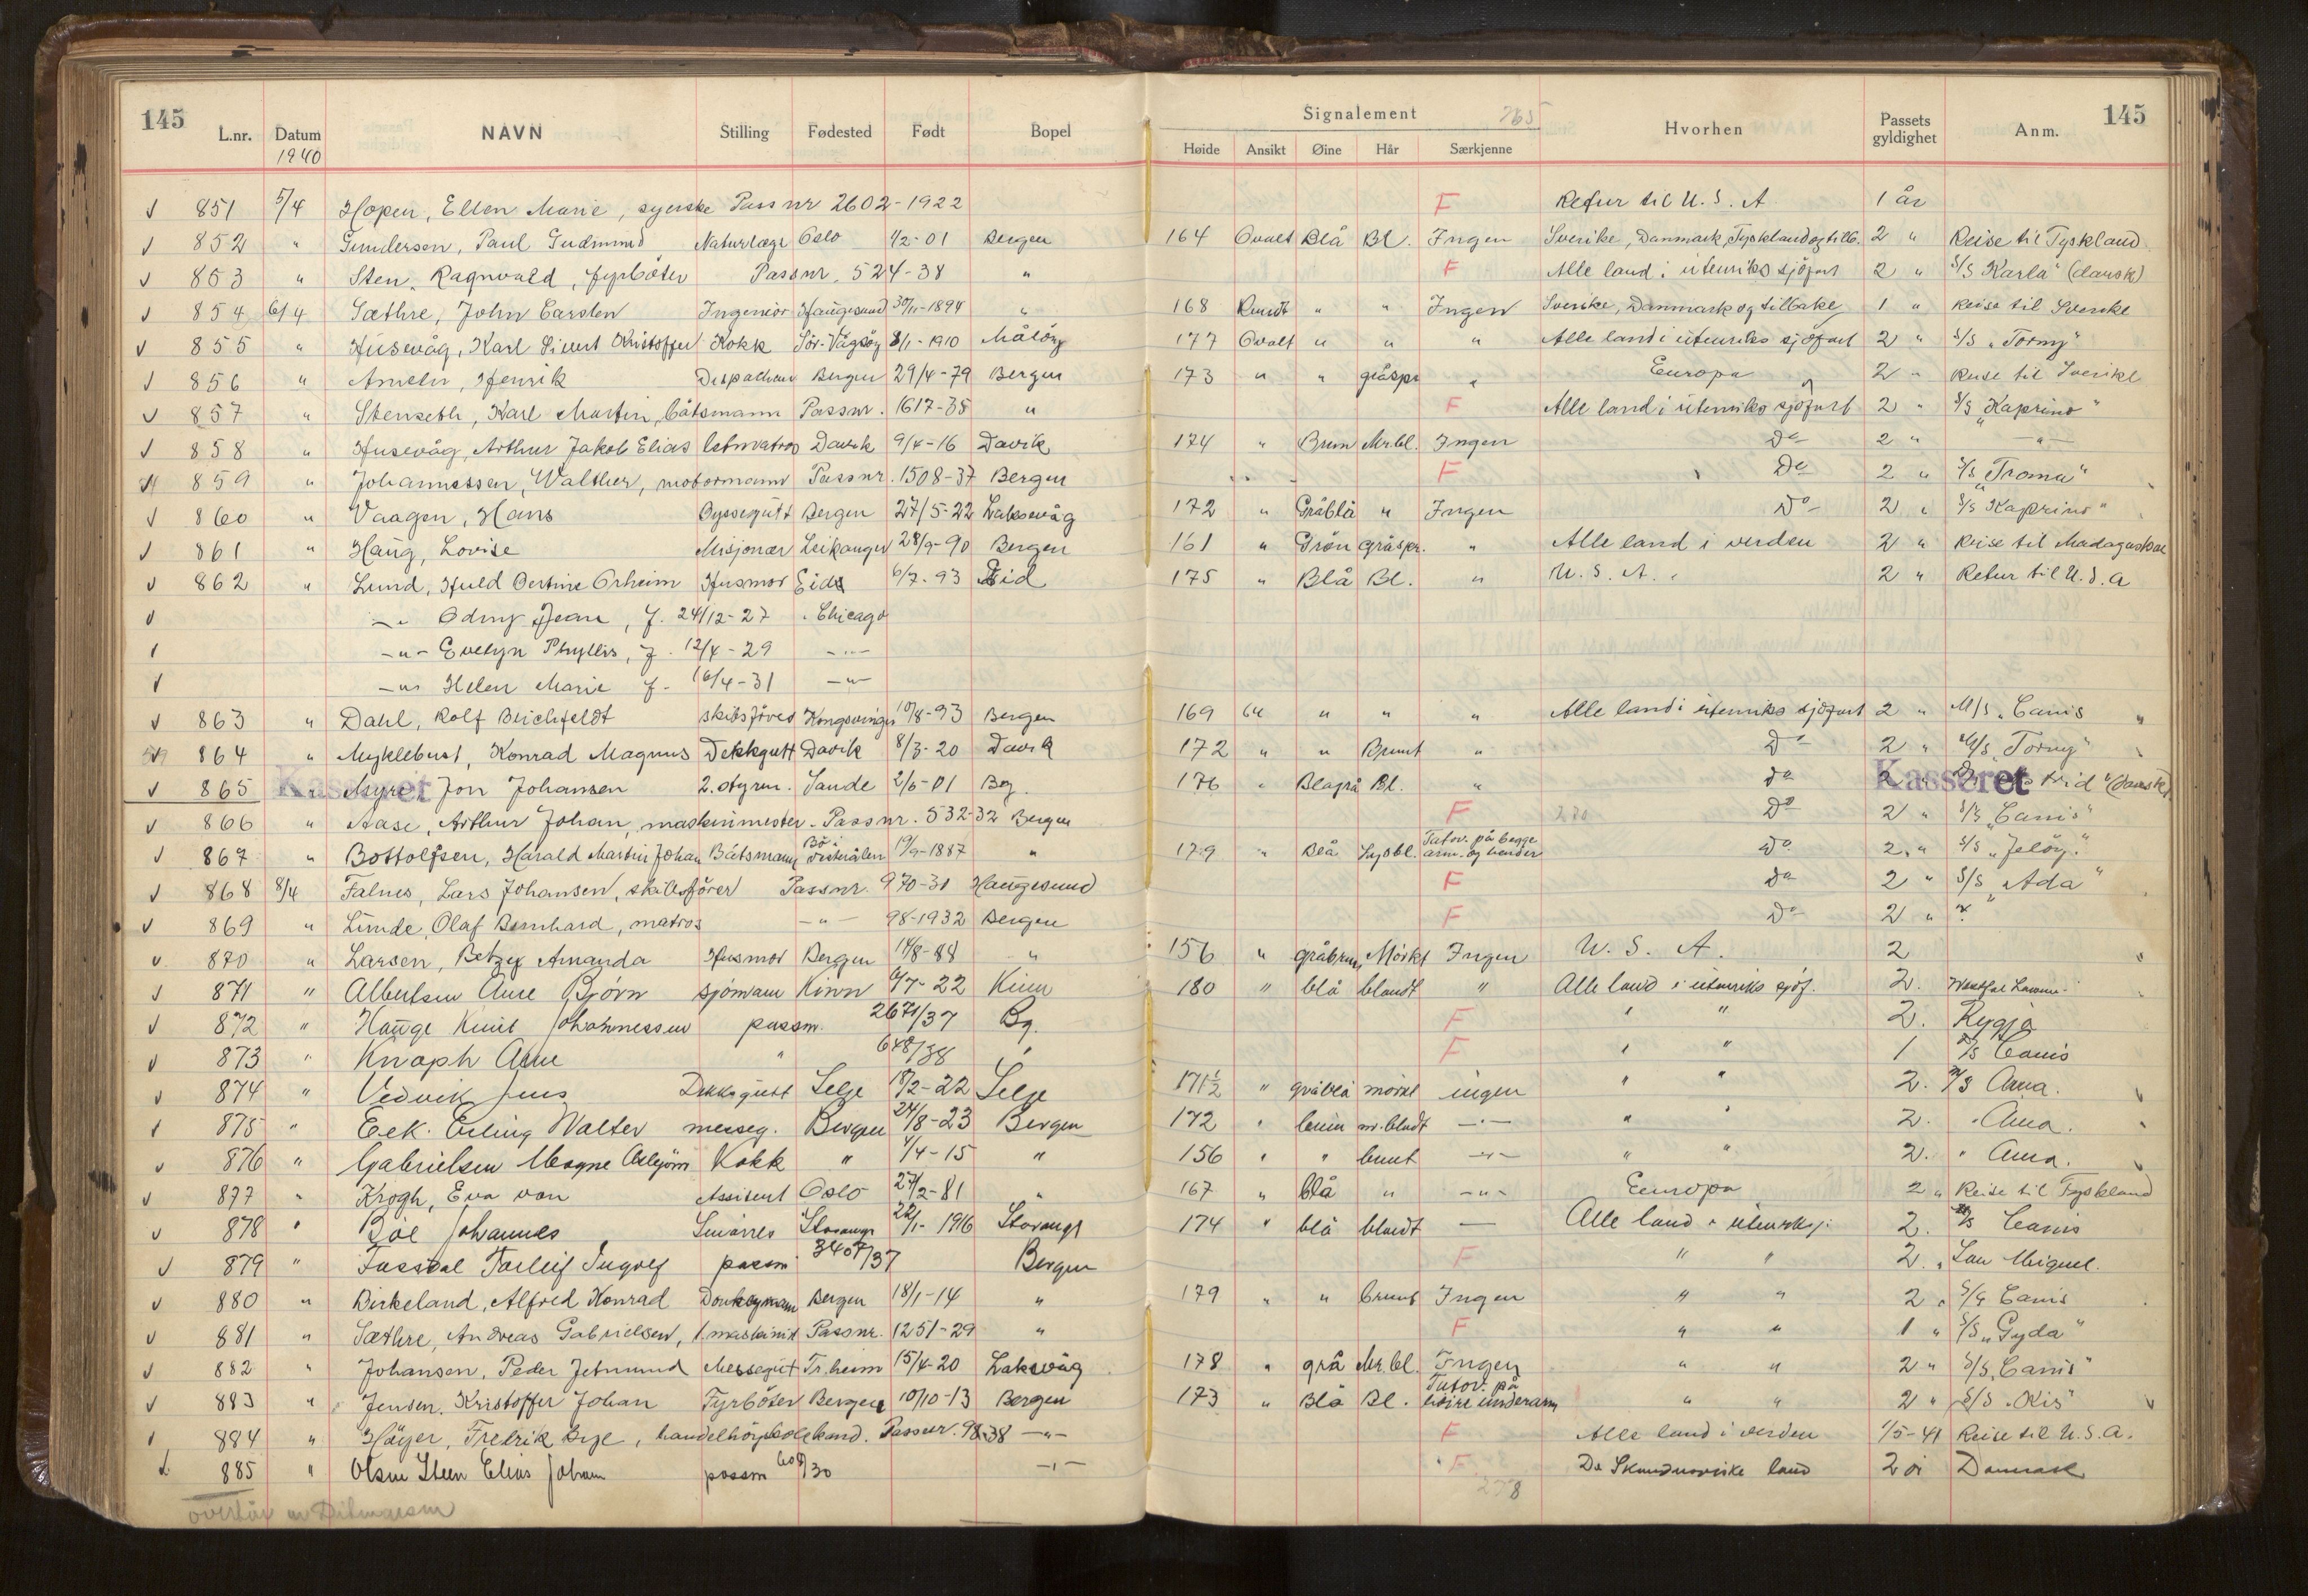 145 L.nr. Datum NAVN Stilling Fødested Født Bopel Signalement 765 Hvorhen Passets gyldighet Anm. 145
1940 Høide Ansikt Øine Hår Særkjenne
851 5/4 Hopen, Ellen Marie, syerske Pass nr 2602-1922 F Retur til U.S.A 1 år
852 " Gundersen, Paul Gudmund Naturlæge Oslo 1/2-01 Bergen 164 Ovalt Blå Bl. Ingen Sverike, Danmark, Tyskland og tilb. 2 " Reise til Tyskland
853 " Sten, Ragnvald, fyrbøter Passnr. 524-38 " F Alle land i utenriks sjöfart 2 " S/S "Karla" (dansk)
854 6/4 Sæthre, John Carsten Ingeniör Haugesund 30/11-1894 " 168 Rundt " " Ingen Sverike, Danmark og tilbake 1 " Reise til Sverike
855 " Husevåg, Karl Sivert Kristoffer Kokk Sör-Vågsöy 8/1-1910 Målöy 177 Ovalt " " " Alle land i utenriks sjöfart 2 " S/S "Torny"
856 " Ameln, Henrik Dispacheur Bergen 29/4-79 Bergen 173 " " gråspr " Europa 2 " Reise til Sverike
857 " Stenseth, Karl Martin, båtsmann Passnr. 1617-38 " F Alle land i utenriks sjöfart 2 " S/S "Kaprino"
858 " Husevåg, Arthur Jakob Elias letmatros Davik 9/4-16 Davik 174 " Brun Mr.bl. Ingen Do 2 " -"-
859 " Johannessen, Walther, motormann Passnr. 1508-37 Bergen F Do 2 " S/S "Troma"
860 " Vaagen, Hans Byssegutt Bergen 27/5-22 Laksevåg 172 " Gråblå " Ingen Do 2 " S/S "Kaprino"
861 " Haug, Lovise Misjonær Leikanger 28/9-90 Bergen 161 " Grön gråspr. " Alle land i verden 2 " Reise til Madagaskar
862 " Lund, Huld Bertine Orheim Husmor Eid 6/7-93 Eid 175 " Blå Bl. " U.S.A. 2 " Retur til U.S.A
-"- Odny Jean, f. 24/12-27 Chicago
-"- Evelyn Phyllis, f. 12/4-29 -"-
-"- Helen Marie f. 16/4-31 -"-
863 " Dahl, Rolf Blichfeldt skibsförer Kongsvinger 10/8-93 Bergen 169 " " " Alle land i utenriks sjöfart 2 " M/S "Canis"
864 " Myklebust, Konrad Magnus Dekkgutt Davik 8/3-20 Davik 172 " " Brunt " Do 2 " "Torny"
865 Kasseret Myre, Jon Johansen 2. styrm. Sande 2/6-01 Bg. 176 " Blågrå Bl. " do 2 Kasseret (dansk)
866 " Aase, Arthur Johan, maskinmester. Passnr. 532-32 Bergen F Do 2 " S/S "Canis"
867 " Bottolfsen, Harald Martin Johan Båtsmann Bö i Vesterålen 19/9-1887 " 179 " Blå Lysbl. Tatov. på begge arm. og hender Do 2 " S/S "Jelöy"
868 8/4 Falnes, Lars Johansen, skibsförer Passnr. 970-31 Haugesund F do 2 " S/S "Ada"
869 " Lunde, Olaf Bernhard, matros -"- 98-1932 Bergen F Do 2 " ?
870 " Larsen, Betzy Amanda Husmor Bergen 14/8-88 " 156 " gråbrun Mörkt Ingen U.S.A. 2
871 " Albertsen Arne Björn sjömann Kinn 4/7-22 Kinn 180 " blå blandt " Alle land i utenriks sjöf. 2.
872 " Hauge Knut Johannessen passnr. 2671/37 Bg. F " " 2. Rygja
873 " Knoph Arne " 648/38 " F " " 1 S/S Canis
874 " Vedvik Jens Dekksgutt Selje 18/2-22 Selje 171½ " gråblå mörkt ingen " " 2. M/S Anna.
875 " Eek. Erling Walter messeg. Bergen 24/8-23 Bergen 172 " brun m.blndt -"- " " 2. " Anna.
876 " Gabrielsen Magne Asbjörn Kokk " 4/4-15 " 156 " " brunt -"- " " 2. " Anna.
877 " Krogh, Eva von Assistent Oslo 27/2-81 " 167 " blå " -"- Europa 2 " Reise til Tyskland
878 " Böe Johannes Smörer Stavanger 22/1-1916 Stavanger 174 " blå blandt — Alle land i utenrksj. 2. M/S Canis
879 " Fossdal Torleif Ingolf passnr 3407/37 Bergen F " " 2. " San Miguel.
880 " Birkeland, Alfred Konrad Donkeymann Bergen 18/1-14 " 179 " " brunt Ingen " " 2 " S/S Canis
881 " Sæthre, Andreas Gabrielsen, 1. maskinist Passnr. 1251-29 " F " " 1 " S/S "Gyda"
882 " Johansen, Peder Jetmund Messegut Tr.heim 15/4-20 Laksevåg 178 " grå Mr.bl. Ingen " " 2 " S/S "Canis"
883 " Jensen, Kristoffer Johan Fyrböter Bergen 10/10-13 Bergen 173 " Blå Bl. Tatov. på höire underarm " " 2 " S/S "Kis"
884 " Höyer, Fredrik handelhöyskolekand. Passnr. 98-38 -"- F Alle land i verden 1/5-41 Reise til U.S.A.
885 " Olsen Steen Elias Johan passnr 608/30 -"- F De Skandinaviske land 2 år Danmark
278